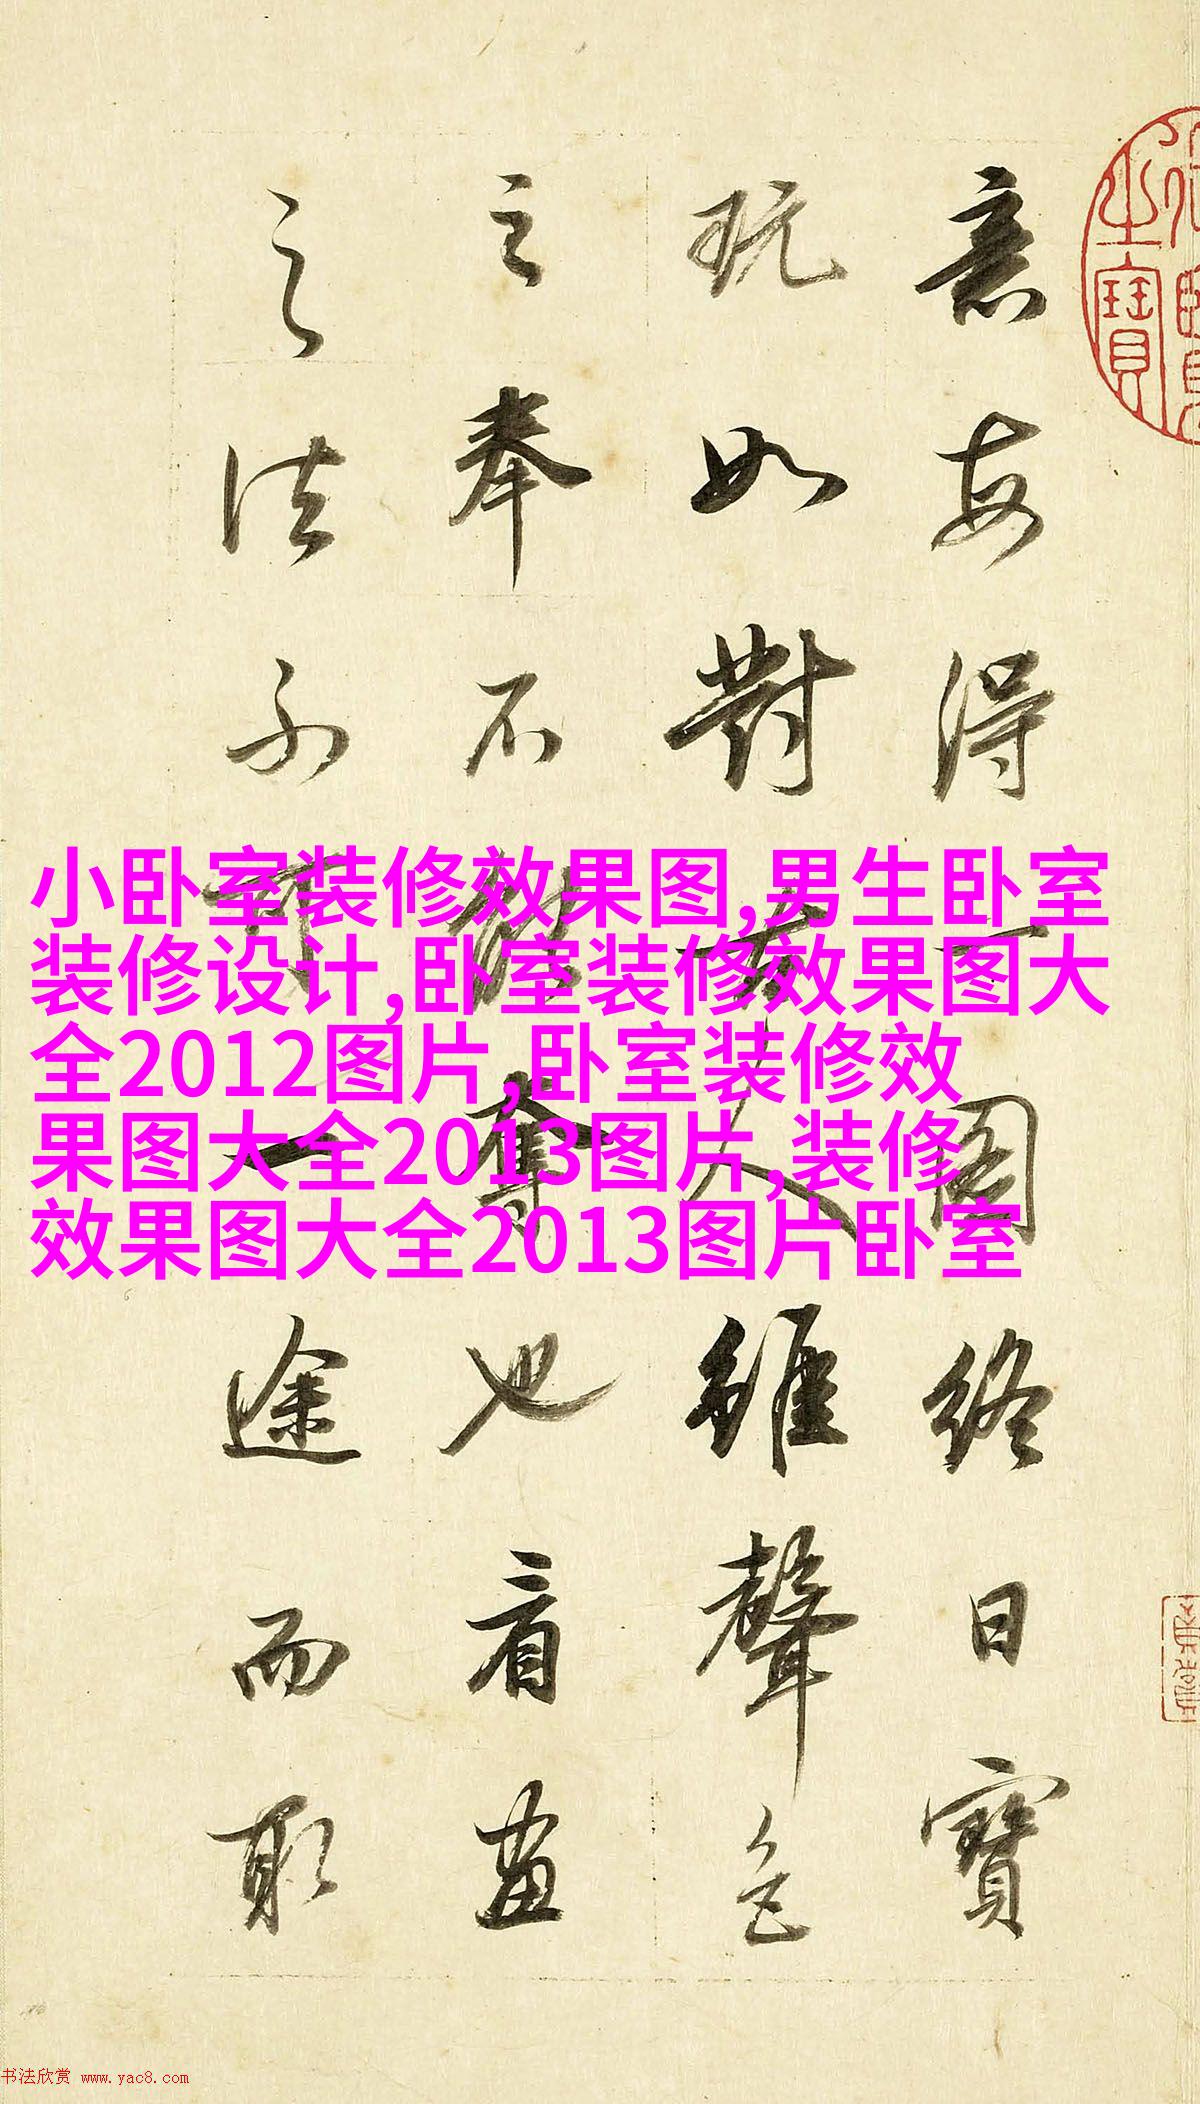 意每得一圖終日寶
玩如對古人雖聲色
之奉不能奪也看畫
之法不可一途而取
小卧室装修效果图,男生卧室
装修设计,卧室装修效果图大
全2012图片,卧室装修效
果图大全2013图片,装修
效果图大全2013图片卧室
之寶
书法欣赏 www.yac8.com